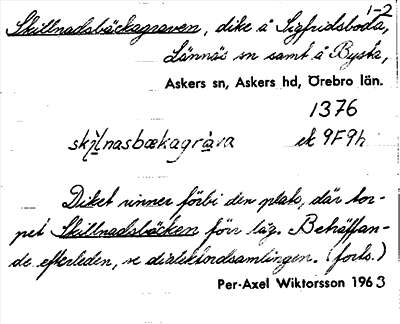 1-2
Skillnadsbäckagraven, dike å Sigfridsboda,
Lännäs sn samt å Bysta,
Askers sn, Askers hd, Örebro län.
1376
skilnasbækagráva ek 9F9h
Diket rinner förbi den plats, där tor-
pet Skillnadsbäcken förr låg. Beträffan-
de efterleden, se dialektordsamlingen. (forts.)
Per-Axel Wiktorsson 1963